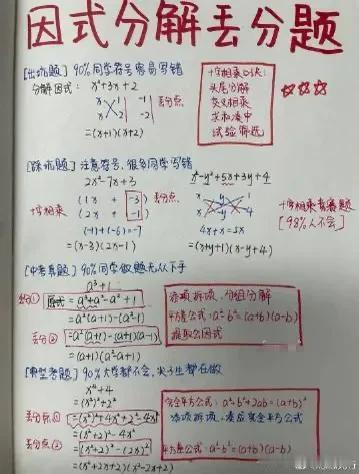 因式分解丢分题
[出坑题] 90%同学符号容易写错
分解因式: x²+3x+2
x 1 -1
x 2 -2
丢分点
=(x+1)(x+2)
十字相乘口诀:
头尾分解
交叉相乘
求和凑中
试验筛选
[踩坑题] 注意符号,很多同学写错
2x²-7x+3
十字相乘
(1x + -3)
(2x + -1)
丢分点
(-1)+(-6)=-7
=(x-3)(2x-1)
x²-y²+5x+3y+4
4x+x=5x
=(x+y+1)(x-y+4)
十字相乘竞赛题
[98%人不会]
[中考真题] 90%同学做题无从下手
a³+1
丢分① 原式=a³+a²-a²+1
=a²(a+1)-(a²-1)
丢分② =a²(a+1)-(a+1)(a-1)
=(a+1)(a²-a+1)
添项拆项、分组分解
平方差公式: a²-b²=(a+b)(a-b)
提取公因式
[典型考题] 90%大学都不会,尖子生都在做
x⁴+4
=(x²)²+2²
丢分点① =(x²)²+4x²+2²-4x²
=(x²+2)²-4x²
丢分点② =(x²+2)²-(2x)²
=(x²+2x+2)(x²-2x+2)
完全平方公式: a²+b²+2ab=(a+b)²
添项拆项、凑应完全平方式
平方差公式: a²-b²=(a+b)(a-b)